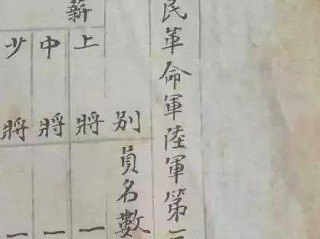 民革命軍陸軍第一
別員名數
薪
上將一
中將一
少將一